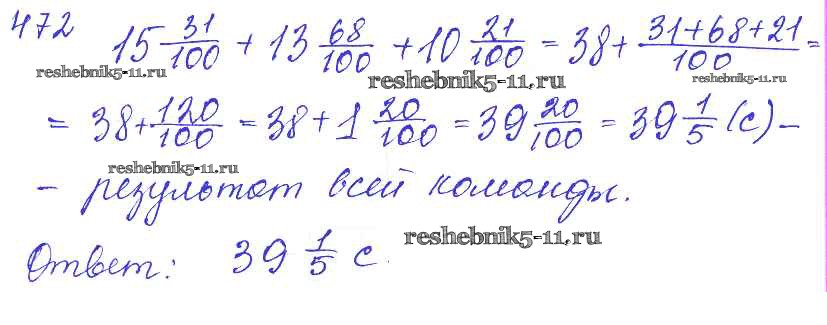 472 15 31/100 + 13 68/100 + 10 21/100 = 38 + (31+68+21)/100 =
reshebnik5-11.ru reshebnik5-11.ru reshebnik5-11.ru
= 38 + 120/100 = 38 + 1 20/100 = 39 20/100 = 39 1/5 (с) –
reshebnik5-11.ru
– результат всей команды.
reshebnik5-11.ru
Ответ: 39 1/5 с.